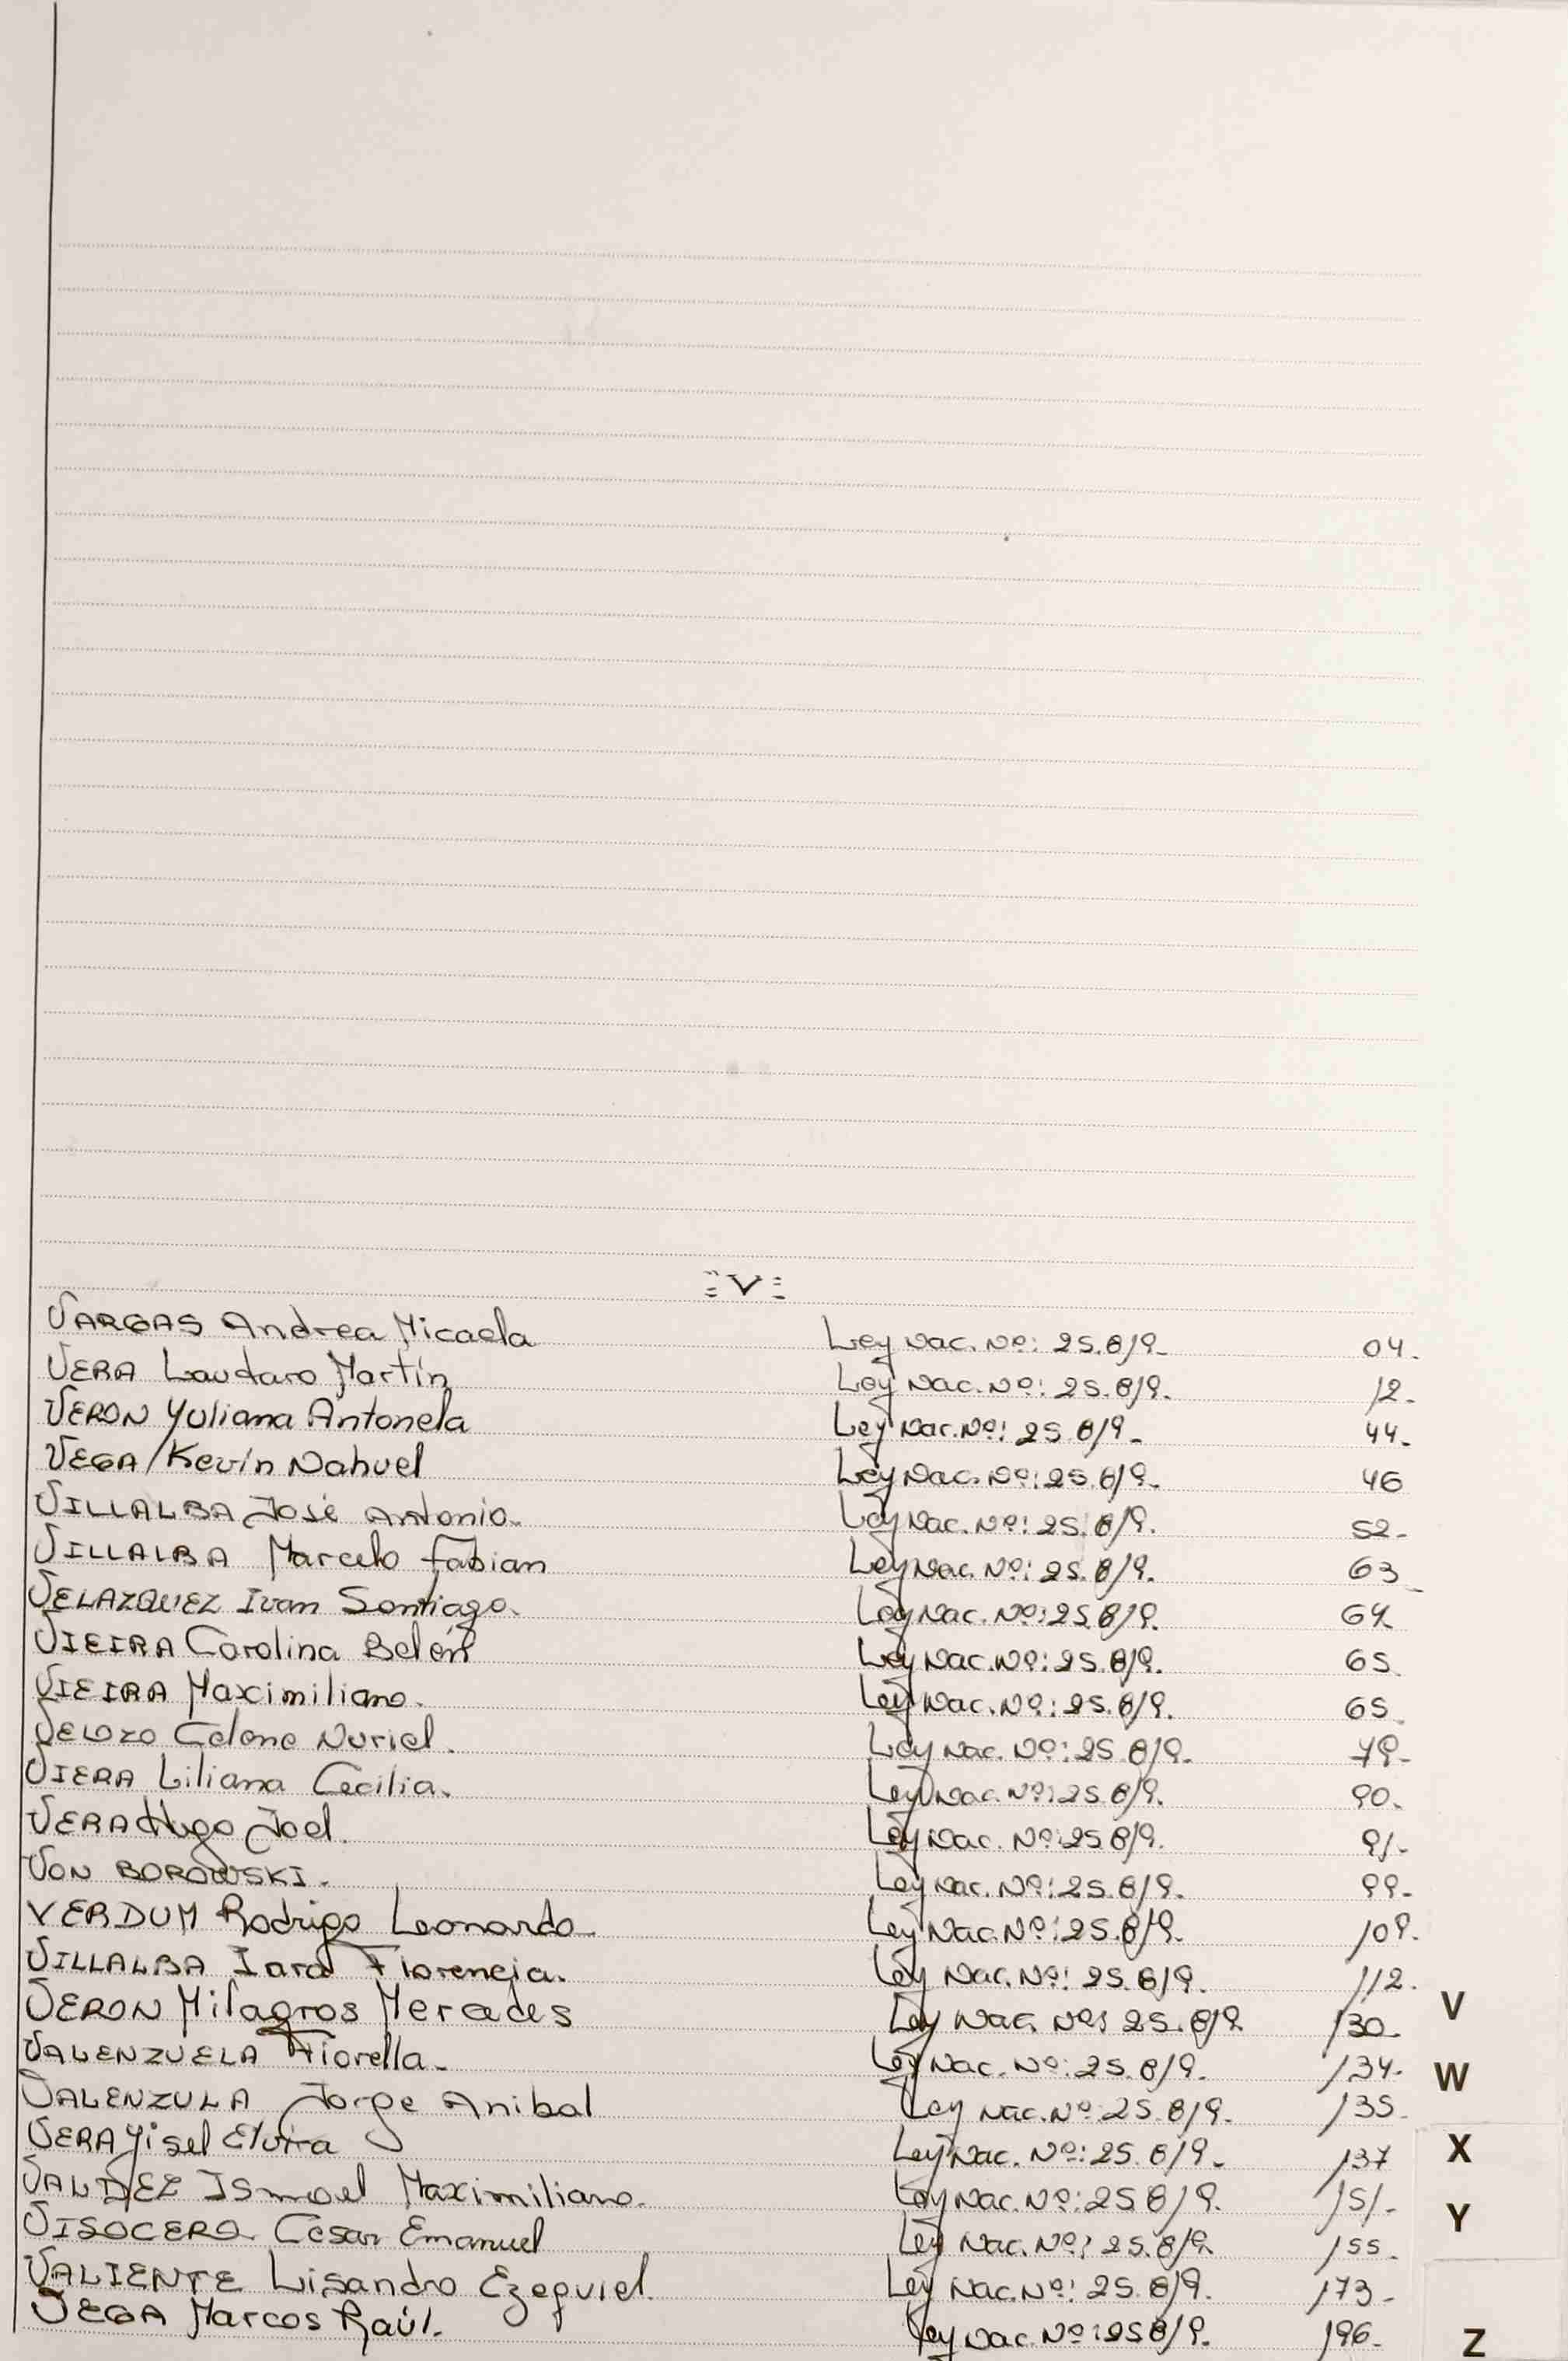 = V =
VARGAS Andrea Micaela Ley Nac. Nº: 25.819- 04-
VERA Lautaro Martín Ley Nac. Nº: 25.819. 12-
VERON Yuliana Antonela Ley Nac. Nº: 25 819- 44-
VEGA Kevin Nahuel Ley Nac. Nº: 25.819- 46
VILLALBA José Antonio. Ley Nac. Nº: 25.819. 52-
VILLALBA Marcelo Fabian Ley Nac. Nº: 25.819. 63-
VELAZQUEZ Ivan Santiago. Ley Nac. Nº: 25.819. 64
VIEIRA Carolina Belén Ley Nac. Nº: 25.819. 65
VIEIRA Maximiliano. Ley Nac. Nº: 25.819. 65
VELOZO Nuriel. Ley Nac. Nº: 25.819. 79-
VIERA Liliana Cecilia. Ley Nac. Nº: 25.819. 90.
VERA Hugo Joel. Ley Nac. Nº: 25 819. 91-
VON BOROWSKI. Ley Nac. Nº: 25.819. 99-
VERDUM Rodrigo Leonardo Ley Nac. Nº: 25.819. 109.
VILLALBA Iara Florencia. Ley Nac. Nº: 25.819. 112.
VERON Milagros Mercedes Ley Nac. Nº: 25.819. 130-
VALENZUELA Fiorella. Ley Nac. Nº: 25.819. 134-
VALENZULA Jorge Anibal Ley Nac. Nº: 25.819. 135-
VERA Yisel Elvira Ley Nac. Nº: 25.819. 137
VALDEZ Ismael Maximiliano. Ley Nac. Nº: 25 819. 151-
VISOCERO Cesar Emanuel Ley Nac. Nº: 25.819. 155-
VALIENTE Lisandro Ezequiel. Ley Nac. Nº: 25.819. 173-
VEGA Marcos Raúl. Ley Nac. Nº: 25 819. 196-
V
W
X
Y
Z